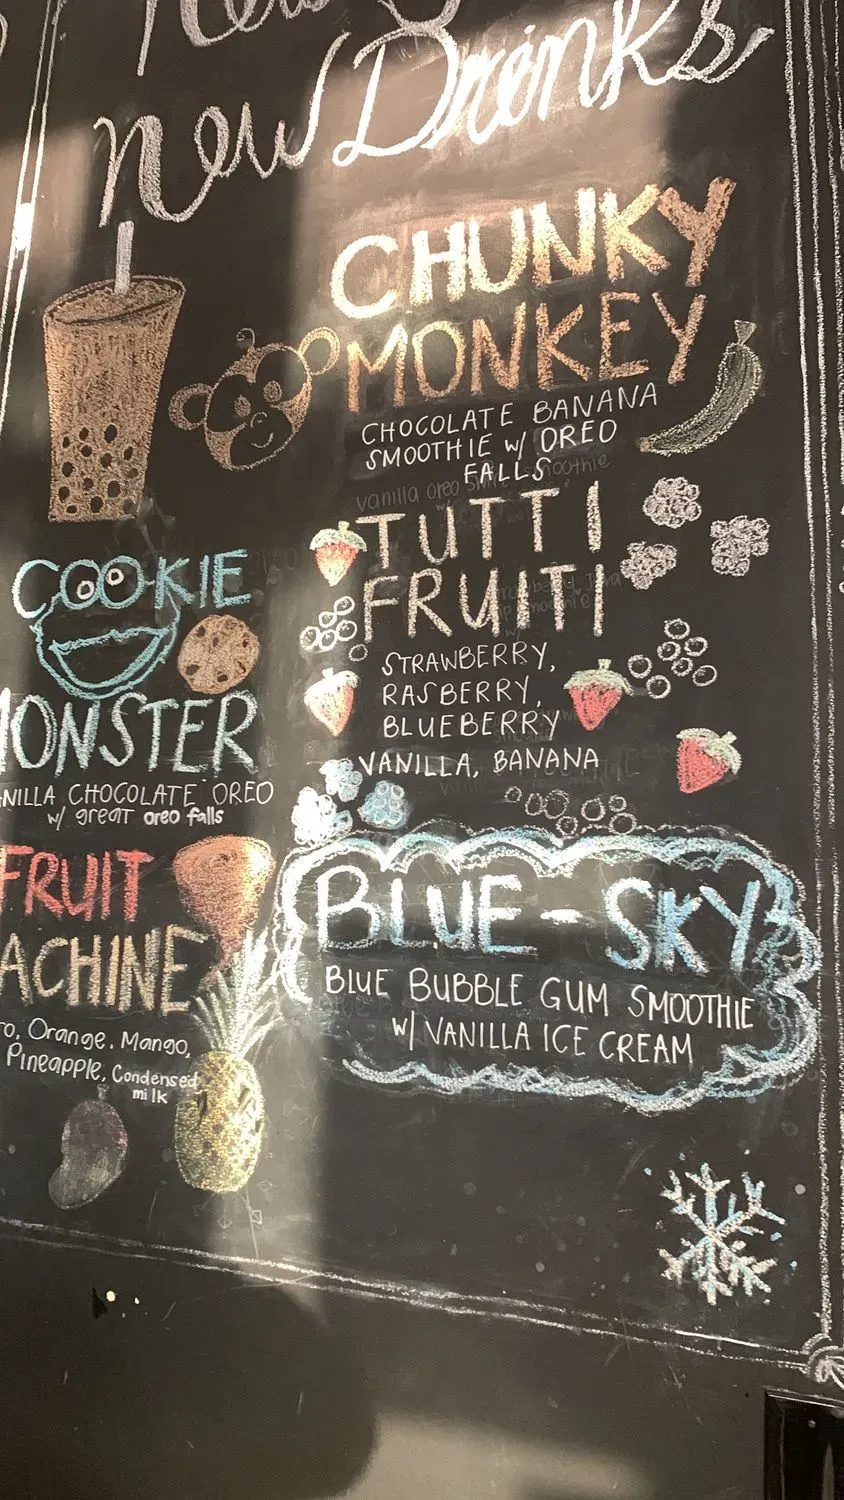 New Drinks
CHUNKY
MONKEY
CHOCOLATE BANANA
SMOOTHIE w/ OREO
FALLS
TUTTI
FRUITI
STRAWBERRY,
RASBERRY,
BLUEBERRY
VANILLA, BANANA
COOKIE
MONSTER
NILLA CHOCOLATE OREO
w/ great oreo falls
FRUIT
ACHINE
ro, Orange, Mango,
Pineapple, Condensed
milk
BLUE-SKY
BLUE BUBBLE GUM SMOOTHIE
w/ VANILLA ICE CREAM